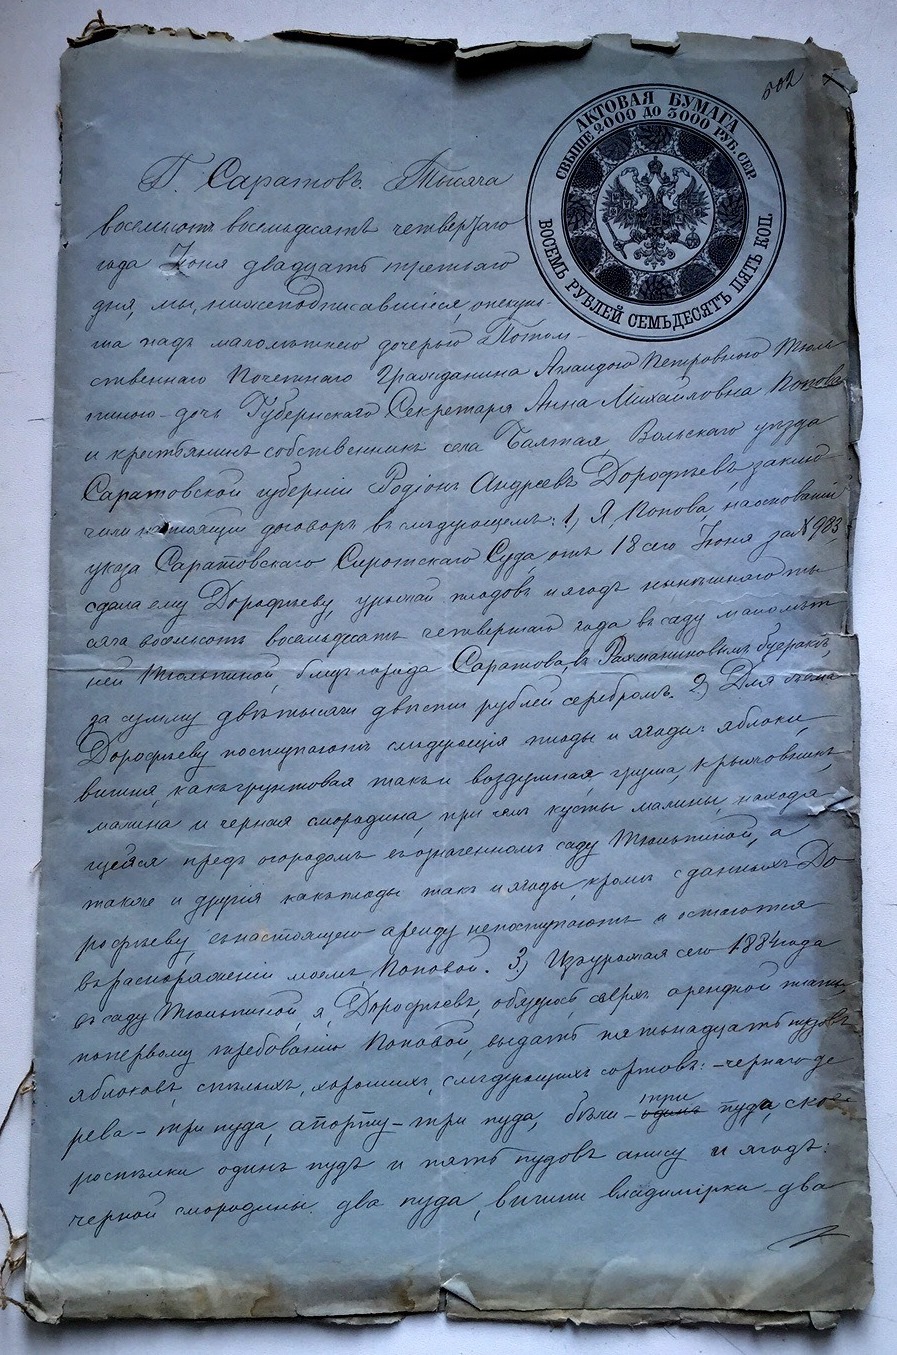 602
АКТОВАЯ БУМАГА
СВЫШЕ 2000 ДО 3000 РУБ. СЕР.
ВОСЕМЬ РУБЛЕЙ СЕМЬДЕСЯТЪ ПЯТЬ КОП.
Г. Саратовъ. Тысяча
восемьсотъ восемьдесятъ четвертаго
года Іюня двадцать третьяго
дня, мы, нижеподписавшіеся, опекун-
ша надъ малолѣтнею дочерью Потом-
ственнаго Почетнаго Гражданина Аглаидою Петровною Тюль
пиною - дочь Губернскаго Секретаря Анна Михайловна Попова
и крестьянинъ собственникъ села Балтая Вольскаго уѣзда
Саратовской губерніи Родіонъ Андреевъ Дорофѣевъ, заклю
чили настоящій договоръ въ слѣдующемъ: 1, Я, Попова, на основаніи
указа Саратовскаго Сиротскаго Суда, отъ 18 сего Іюня за № 983
сдала ему Дорофѣеву, урожай плодовъ и ягодъ нынѣшняго ты
сяча восемьсотъ восемьдесятъ четвертаго года въ саду малолѣт
ней Тюльпиной, близъ города Саратова, въ Рахманиновомъ буеракѣ,
за сумму двѣ тысячи двѣсти рублей серебромъ. 2) Для съема
Дорофѣеву поступаютъ слѣдующія плоды и ягоды: яблоки,
вишня, какъ грунтовая такъ и воздушная, груша, крыжовникъ,
малина и черная смородина, при чемъ кусты малины, находя
щейся предъ огородомъ въ означенномъ саду Тюльпиной, а
также и другія какъ плоды такъ и ягоды, кромѣ сданныхъ До
рофѣеву, въ настоящею аренду не поступаютъ и остаются
въ распоряженіи моемъ Поповой. 3) Изъ урожая сего 1884 года
въ саду Тюльпиной, я, Дорофѣевъ, обязуюсь, сверхъ арендной платы,
по первому требованію Поповой, выдать пятьнадцать пудовъ
яблоковъ, спѣлыхъ, хорошихъ, слѣдующихъ сортовъ: - чернаго де
рева - три пуда, апорту - три пуда, бѣли - одинъ три пуда, ско-
роспѣлки одинъ пудъ и пять пудовъ анису и ягодъ:
черной смородины два пуда, вишни владимірки - два